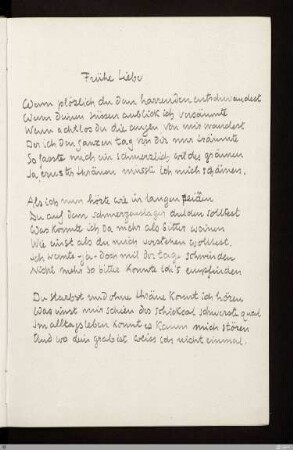 Frühe Liebe
Wenn plötzlich du dem harrenden entschwandest
Wenn deinen süssen anblick ich versäumte
Wenn achtlos du die augen von mir wandest
Der ich den ganzen tag von dir nur träumte
So fasste mich ein schmerzlich wildes grämen
Ja, ernster thränen musst ich mich schämen.
Als ich nun hörte wie in langen
Du auf dem schmerzenslager dulden solltest
Was konnte ich da mehr als bitter weinen
Wie einst als du mich verstehen wolltest.
ich weinte - ja - doch mit der tage schwinden
Nicht mehr so bitter konnte ich's empfinden
Du starbst und ohne thräne konnt ich hören
Was einst mir schien des schicksal schwerste qual
Im alltagsleben konnt es kaum mich stören
Und wo dein grab ist weiss ich nicht einmal.